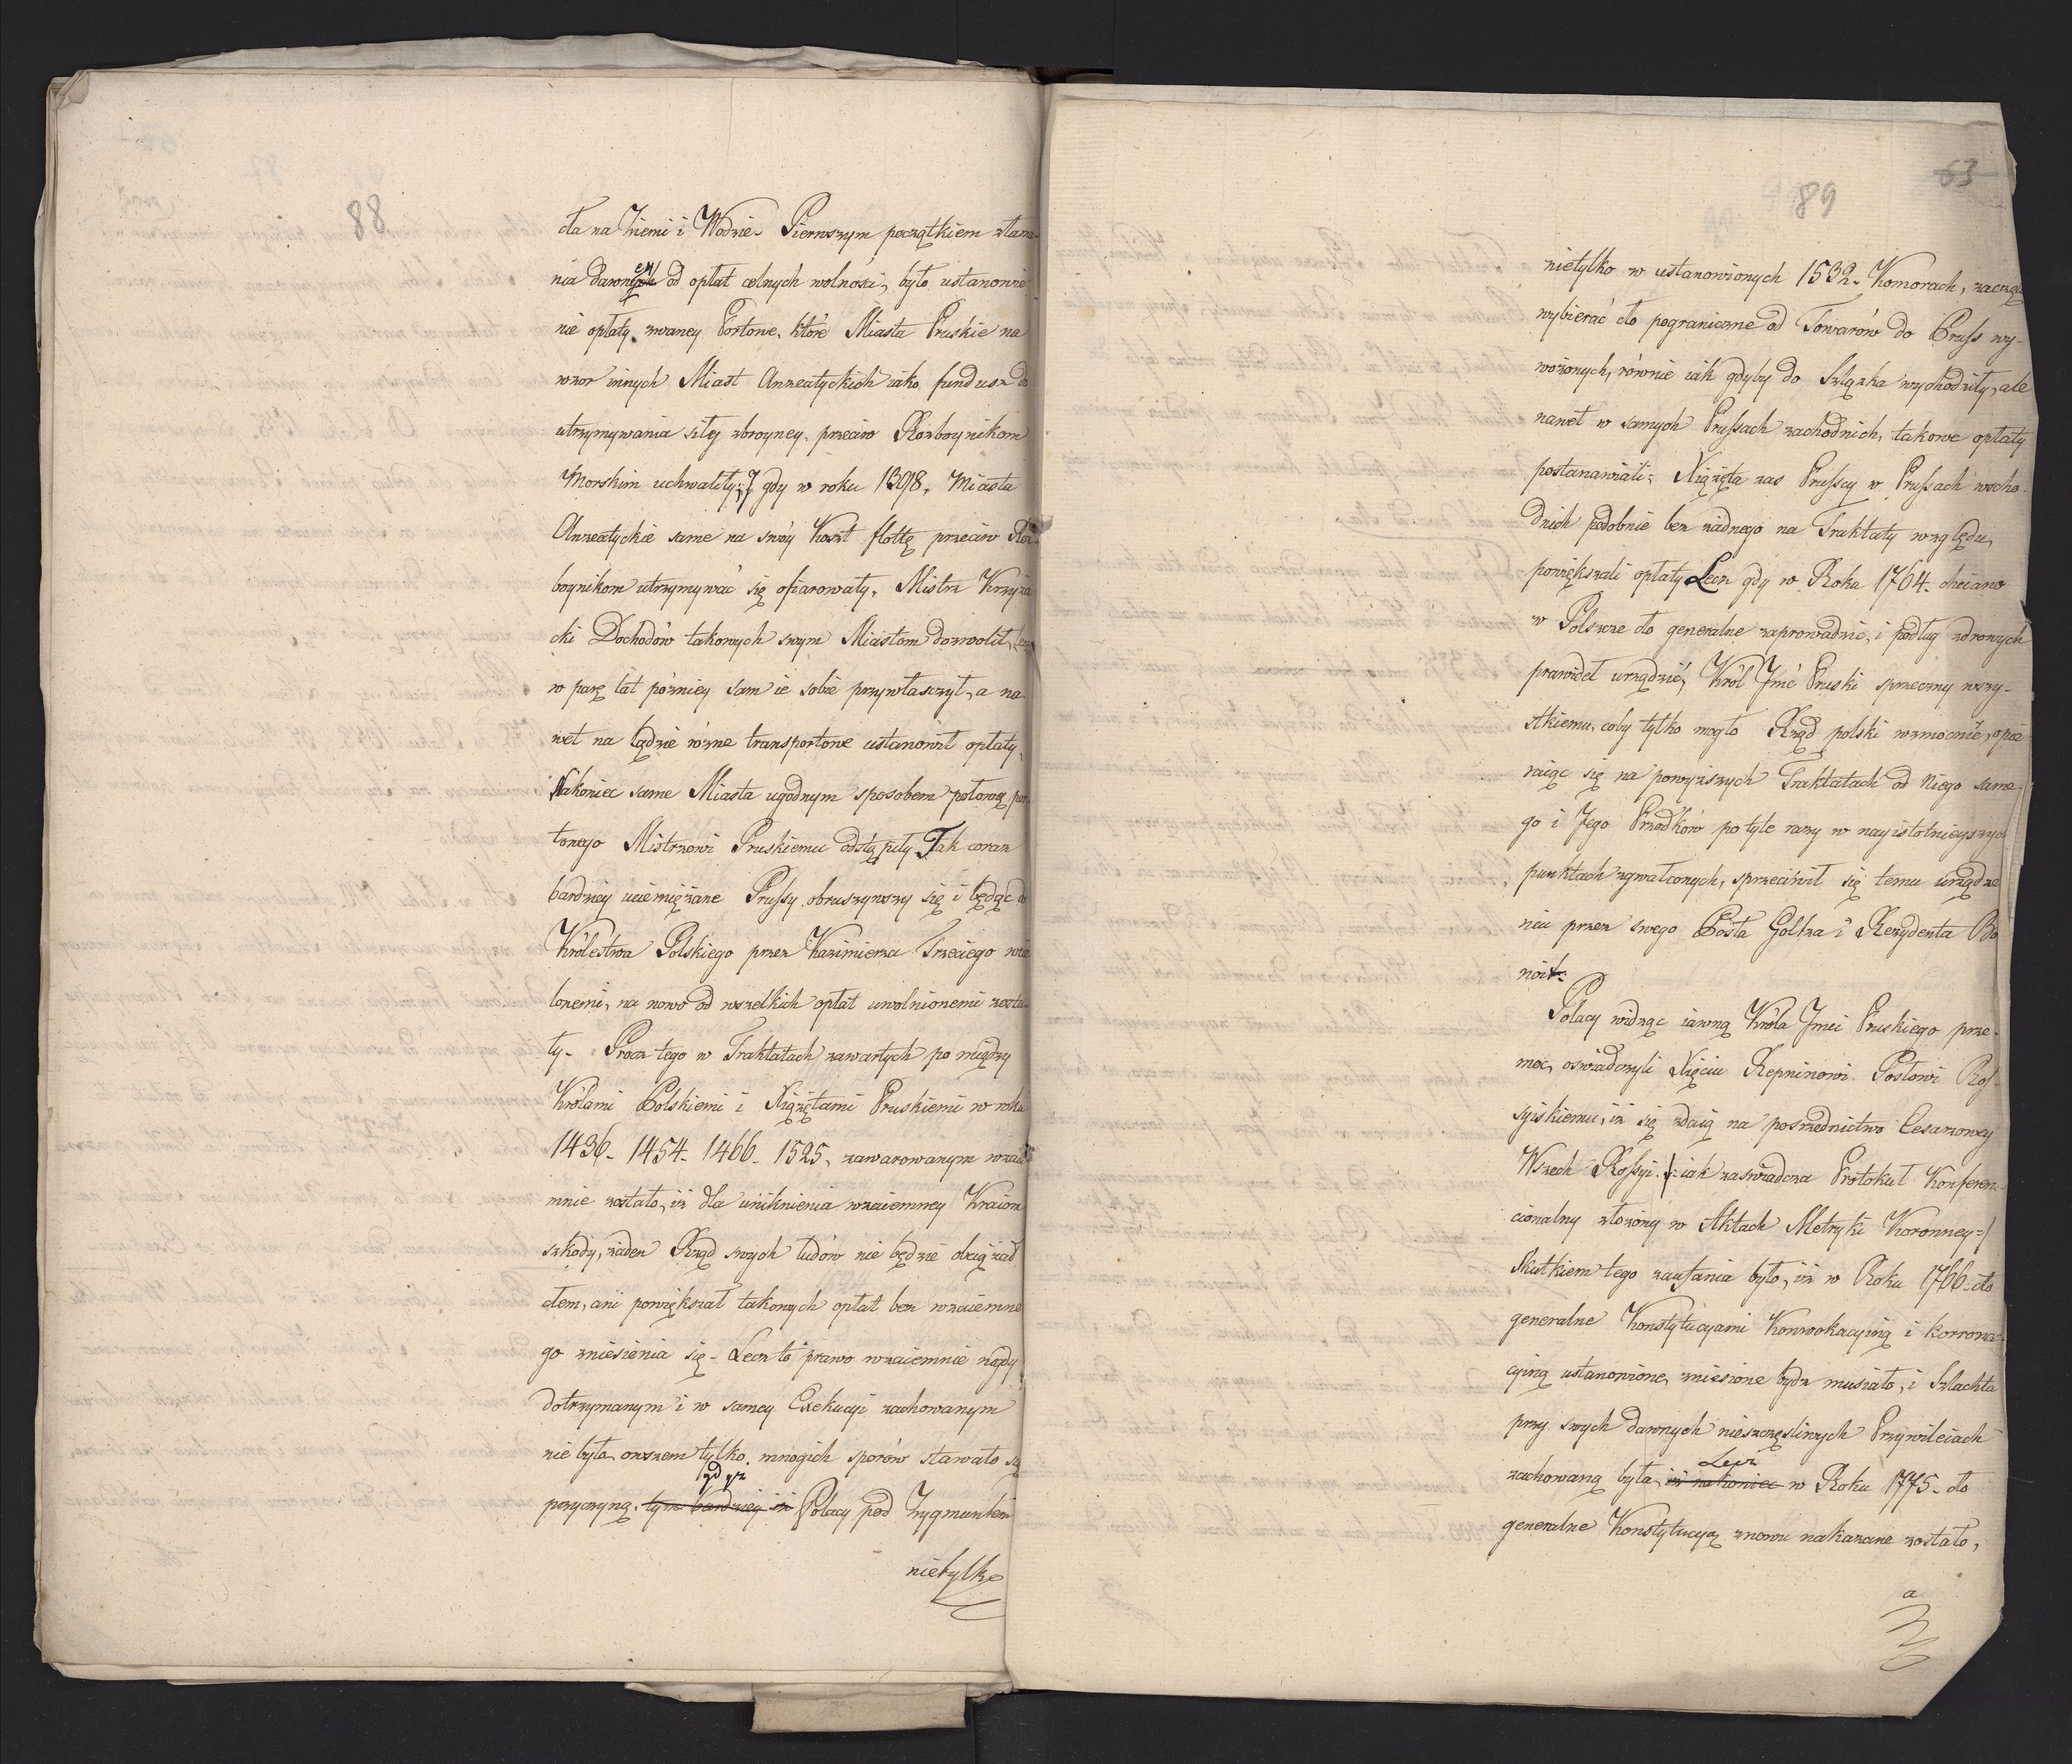 88
cła na Ziemi i Wodzie. Pierwszym początkiem złama-
nia dawney od opłat celnych wolności, było ustanowie
nie opłaty zwaney Portowe, które Miasta Pruskie na
wzor innych Miast Anzeatyckich iako fundusz do
utrzymywania siły zbroyney przeciw Rozboynikom
Morskim uchwaliły; gdy w roku 1398. Miasta
Anzeatyckie same na swóy Koszt flottę przeciw Roz-
boynikom utrzymywać się ofiarowały, Mistrz Krzyża
cki Dochodów takowych swym Miastom dozwolił, lecz
w parę lat pózniey sam ie sobie przywłaszczył, a na-
wet na lądzie rózne transportowe ustanowił opłaty,
Nakoniec same Miasta ugodnym sposobem połowę por
towego Mistrzowi Pruskiemu odstąpiły Tak coraz
bardziey uciemiężane Prussy obruszywszy się i będąc do
Królestwa Polskiego przez Kazimierza Trzeciego wcie
lonemi, na nowo od wszelkich opłat uwolnionemi zosta-
ły. Procz tego w Traktatach zawartych po między
Królami Polskiemi i Xiążętami Pruskiemi w roku
1436. 1454. 1466. 1525. zawarowanym wzaie
mnie zostało, iż dla uniknienia wzaiemney Kraiom
szkody, żaden Rząd swych ludów nie będzie obciążał
cłem, ani powiększał takowych opłat bez wzaiemne
go zniesienia się. Lecz to prawo wzaiemnie nigdy
dotrzymanym i w samey Exekucyi zachowanym
nie było, owszem tylko mnogich sporów stawało się
gdyż
przyczyną. tym bardziey iż Polacy pod Zygmuntem
nietylko
63
89
nietylko w ustanowionych 1532. Komorach, zaczęli
wybierać cło pograniczne od Towarów do Pruss wy-
wożonych, równie iak gdyby do Szląska wychodziły, ale
nawet w samych Prussach zachodnich, takowe opłaty
postanawiali; Xiążęta zas Prusscy w Prussach wscho-
dnich podobnie bez żadnego na Traktaty względu,
powiększali opłaty Lecz gdy w Roku 1764. chciano
w Polszcze cło generalne zaprowadzić, i podług zdrowych
prawideł urządzić, Król Jmć Pruski sprzeczny wszy-
stkiemu, coby tylko mogło Rząd polski wzmocnić, opie
raiąc się na powyższych Traktatach od Niego same
go i Jego Przodków po tyle razy w nayistotnieyszych
punktach zgwałconych, sprzeciwił się temu urządze
niu przez swego Posła Goltza i Rezydenta Be
noit.
Polacy widząc iawną Króla Jmci Pruskiego prze-
moc, oswiadczyli Xięciu Repninowi Posłowi Ros-
syiskiemu, iż się zdaią na posrzednictwo Cesarzowey
Wszech Rossyi /: iak zaświadcza Protokuł Konferen-
cionalny złożony w Aktach Metryki Koronney :/
Skutkiem tego zaufania było, iż w Roku 1766. cło
generalne Konstytucyami Konwokacyiną i korrona-
cyiną ustanowione, zniesione bydz musiało, i Szlachta
przy swych dawnych nieszczęśliwych Przywileiach
Lecz
zachowaną była, iż nakoniec w Roku 1775. cło
generalne Konstytucyą znowu nakazane zostało,
a